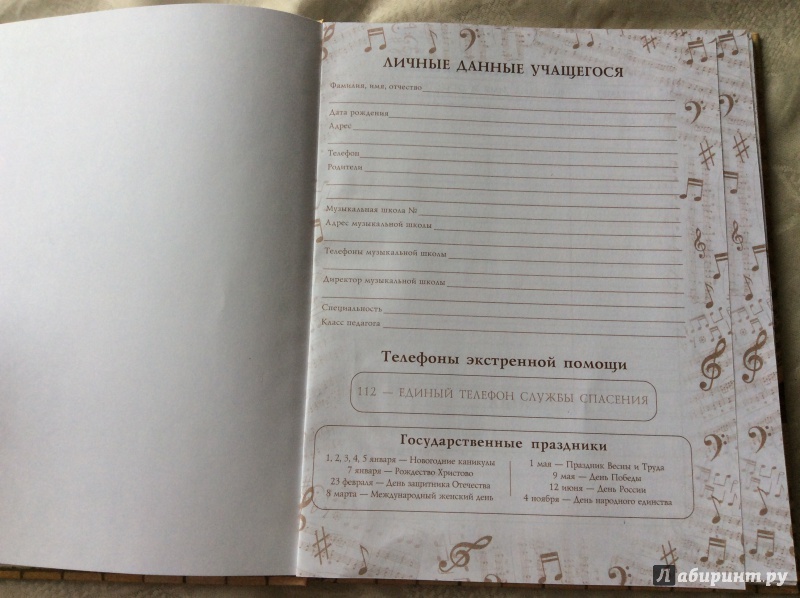 ЛИЧНЫЕ ДАННЫЕ УЧАЩЕГОСЯ
Фамилия, имя, отчество
Дата рождения
Адрес
Телефон
Родители
Музыкальная школа №
Адрес музыкальной школы
Телефоны музыкальной школы
Директор музыкальной школы
Специальность
Класс педагога
Телефоны экстренной помощи
112 — ЕДИНЫЙ ТЕЛЕФОН СЛУЖБЫ СПАСЕНИЯ
Государственные праздники
1, 2, 3, 4, 5 января — Новогодние каникулы
7 января — Рождество Христово
23 февраля — День защитника Отечества
8 марта — Международный женский день
1 мая — Праздник Весны и Труда
9 мая — День Победы
12 июня — День России
4 ноября — День народного единства
Лабиринт.ру